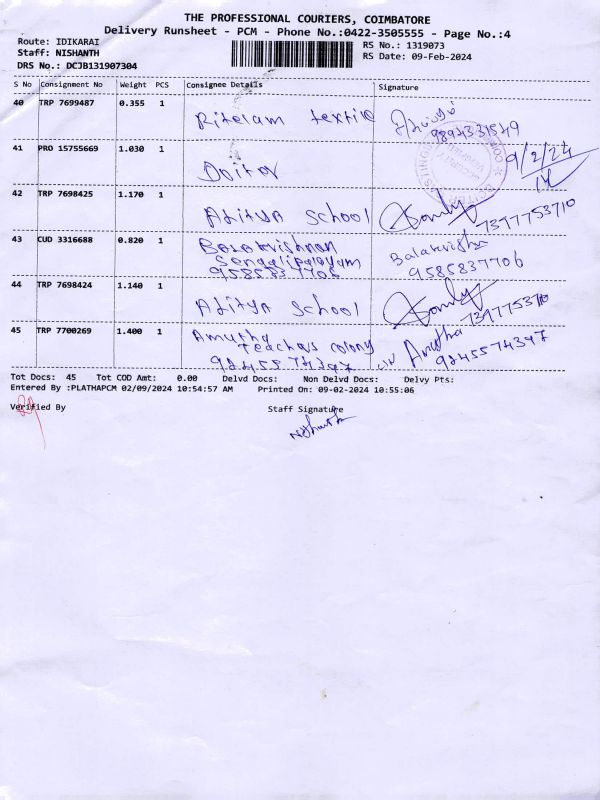 THE PROFESSIONAL COURIERS, COIMBATORE
Delivery Runsheet - PCM - Phone No.:0422-3505555 - Page No.:4
Route: IDIKARAI
Staff: NISHANTH
DRS No.: DCJB131907304
RS No.: 1319073
RS Date: 09-Feb-2024
S No Consignment No Weight PCS Consignee Details Signature
40 TRP 7699487 0.355 1 Ritelam textile
9894331549
41 PRO 15755669 1.030 1 Doitor 9/2/24
42 TRP 7698425 1.170 1 Aditya school 7397753710
43 CUD 3316688 0.820 1 Balakrishnan
Sengalipalayam
9585837706
Balakrishna
9585837706
44 TRP 7698424 1.140 1 Aditya school 7397753710
45 TRP 7700269 1.400 1 Amutha
Teachers colony
9245574397
Amutha
9245574397
Tot Docs: 45 Tot COD Amt: 0.00 Delvd Docs: Non Delvd Docs: Delvy Pts:
Entered By :PLATHAPCM 02/09/2024 10:54:57 AM Printed On: 09-02-2024 10:55:06
Verified By Staff Signature